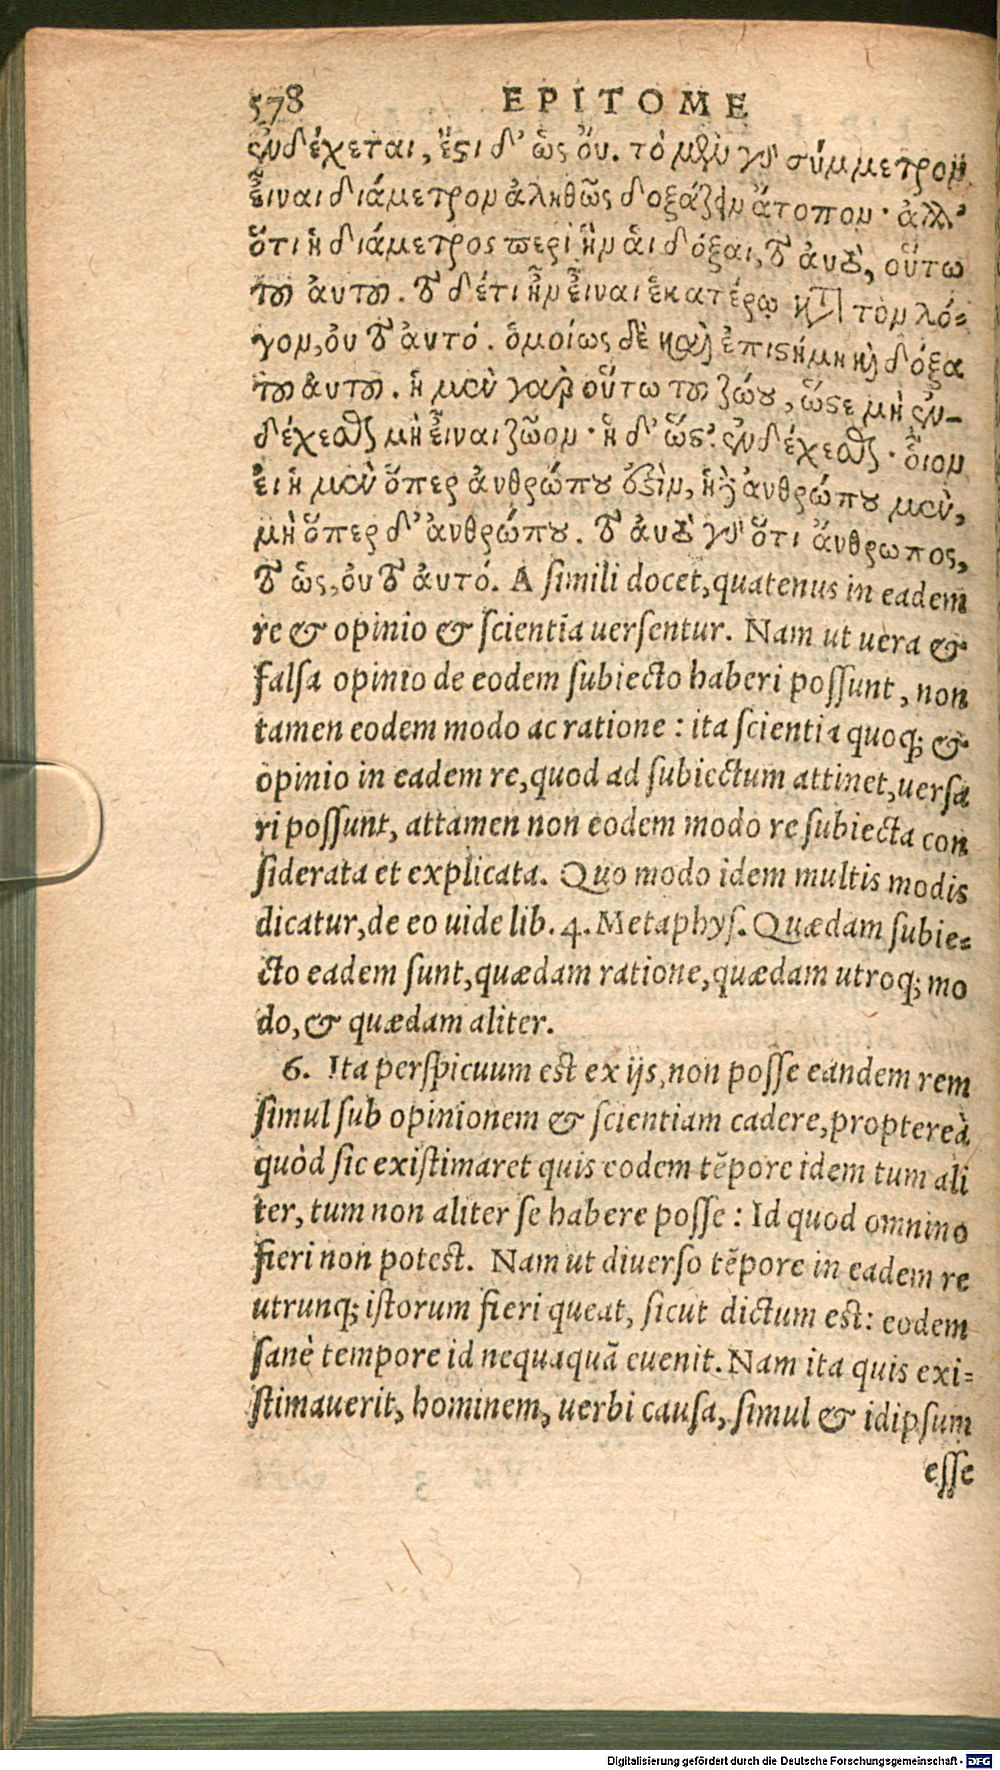 578 EPITOME
ἐνδέχεται, ἔστι δ' ὡς ὄυ. τὸ μὲν γὰρ σύμμετρον
ἔιναι διάμετρον ἀληθῶς δοξάζειν ἄτοπον· ἀλλ'
ὅτι ἡ διάμετρος περὶ ἣν ἁι δόξαι, τὸ ἀυτὸ, οὕτω
τοῦ ἀυτοῦ. τὸ δέτι ἦν ἔιναι ἑκατέρῳ κατὰ τὸν λό=
γον, ὀυ τὸ ἀυτό. ὁμοίως δὲ καὶ ἐπιστήμη καὶ δόξα
τοῦ ἀυτοῦ. ἡ μὲν γὰρ οὕτω τοῦ ζώου, ὥστε μὴ ἐν-
δέχεσθαι μὴ ἔιναι ζῶον· ἡ δ' ὥστ' ἐνδέχεσθαι· ὅιον
ἐι ἡ μὲν ὅπερ ἀνθρώπου ἐστὶν, ἡ δ' ἀνθρώπου μὲν,
μὴ ὅπερ δ' ἀνθρώπου. τὸ ἀυτὸ γὰρ ὅτι ἄνθρωπος,
τὸ ὡς, ὀυ τὸ ἀυτό. A simili docet, quatenus in eadem
re & opinio & scientia uersentur. Nam ut uera &
falsa opinio de eodem subiecto haberi possunt, non
tamen eodem modo ac ratione: ita scientia quoq; &
opinio in eadem re, quod ad subiectum attinet, uersa
ri possunt, attamen non eodem modo re subiecta con
siderata et explicata. Quo modo idem multis modis
dicatur, de eo uide lib. 4. Metaphys. Quædam subie=
cto eadem sunt, quædam ratione, quædam utroq; mo
do, & quædam aliter.
6. Ita perspicuum est ex ijs, non posse eandem rem
simul sub opinionem & scientiam cadere, proptereà
quòd sic existimaret quis eodem tẽpore idem tum ali
ter, tum non aliter se habere posse: Id quod omnino
fieri non potest. Nam ut diuerso tẽpore in eadem re
utrunq; istorum fieri queat, sicut dictum est: eodem
sanè tempore id nequaquã euenit. Nam ita quis exi=
stimauerit, hominem, uerbi causa, simul & idipsum
esse
Digitalisierung gefördert durch die Deutsche Forschungsgemeinschaft - DFG